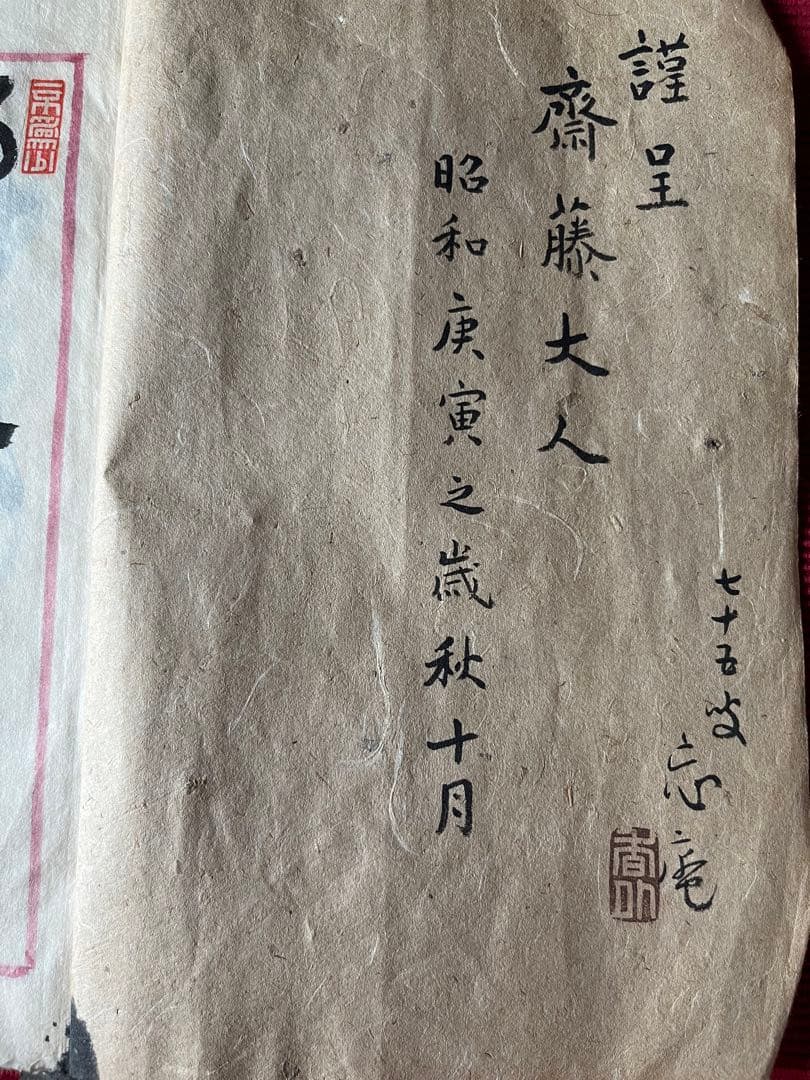 謹呈
齋藤大人
昭和庚寅之歳秋十月
七十五叟
忘庵